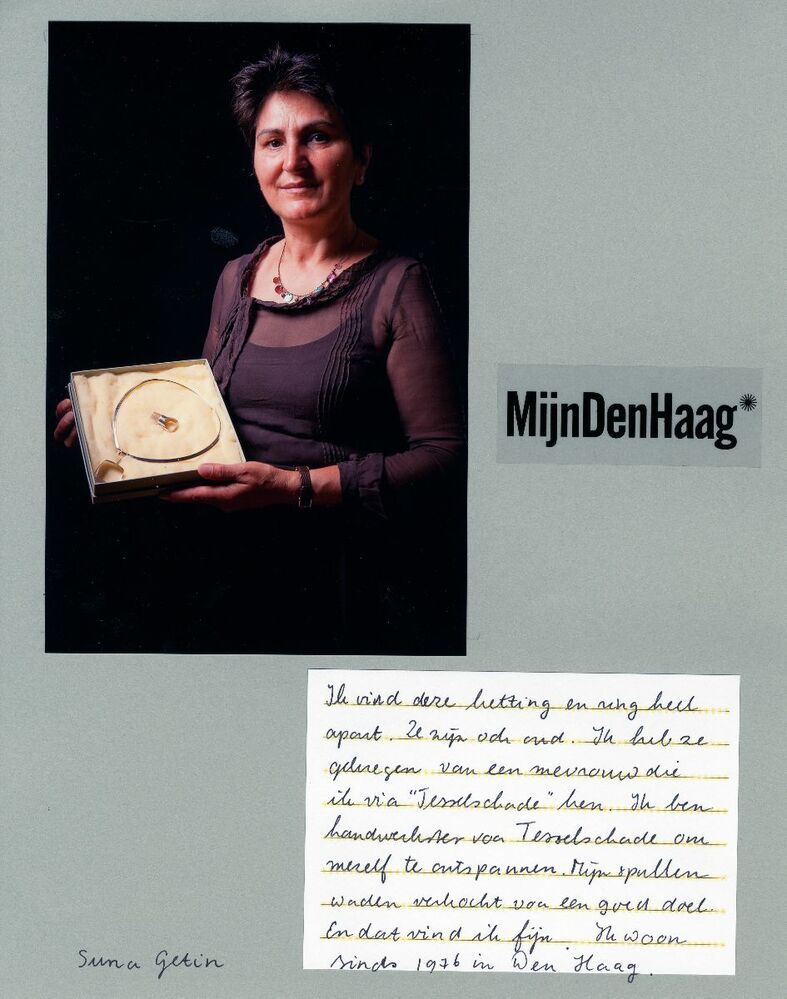 MijnDenHaag*
Ik vind deze ketting en ring heel
apart. Ze zijn ook oud. Ik heb ze
gekregen van een mevrouw die
ik via "Tesselschade" ken. Ik ben
handwerkster voor Tesselschade om
mezelf te ontspannen. Mijn spullen
worden verkocht voor een goed doel.
En dat vind ik fijn. Ik woon
sinds 1976 in Den Haag.
Suna Getin